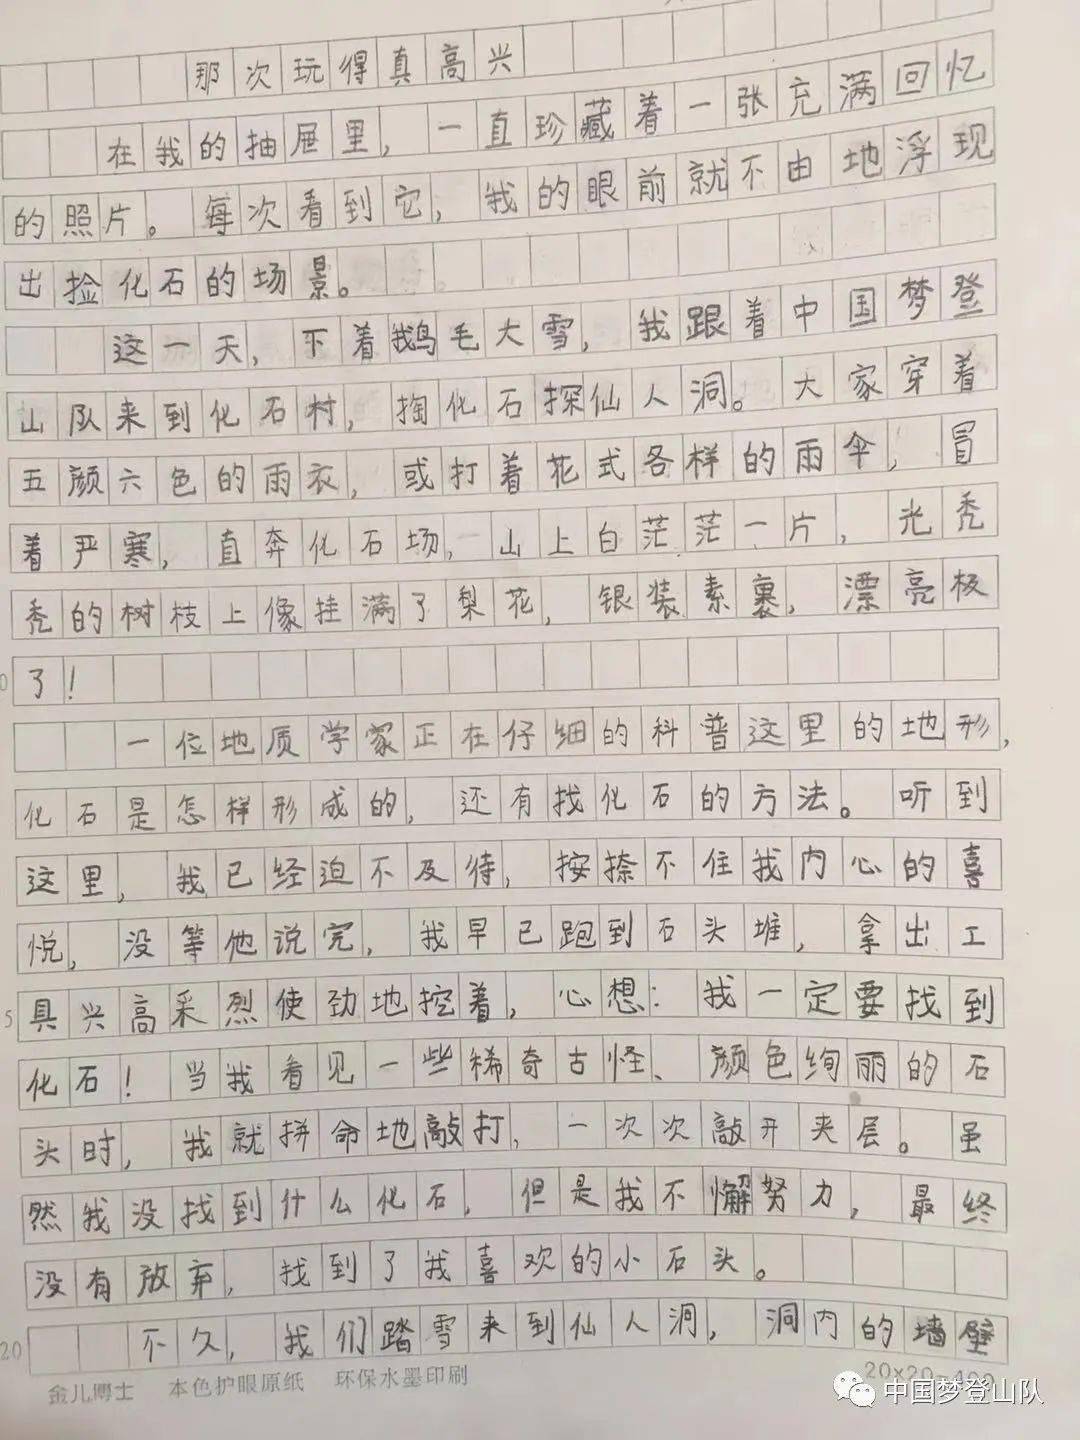 那次玩得真高兴
在我的抽屉里，一直珍藏着一张充满回忆
的照片。每次看到它，我的眼前就不由地浮现
出捡化石的场景。
这一天，下着鹅毛大雪，我跟着中国梦登
山队来到化石村，掏化石探仙人洞。大家穿着
五颜六色的雨衣，或打着花式各样的雨伞，冒
着严寒，直奔化石场，山上白茫茫一片，光秃
秃的树枝上像挂满了梨花，银装素裹，漂亮极
了！
一位地质学家正在仔细的科普这里的地形，
化石是怎样形成的，还有找化石的方法。听到
这里，我已经迫不及待，按捺不住我内心的喜
悦，没等他说完，我早已跑到石头堆，拿出工
具兴高采烈使劲地挖着，心想：我一定要找到
化石！当我看见一些稀奇古怪、颜色绚丽的石
头时，我就拼命地敲打，一次次敲开夹层。虽
然我没找到什么化石，但是我不懈努力，最终
没有放弃，找到了我喜欢的小石头。
不久，我们踏雪来到仙人洞，洞内的墙壁
5
20
金儿博士 本色护眼原纸 环保水墨印刷
20x20=400
中国梦登山队